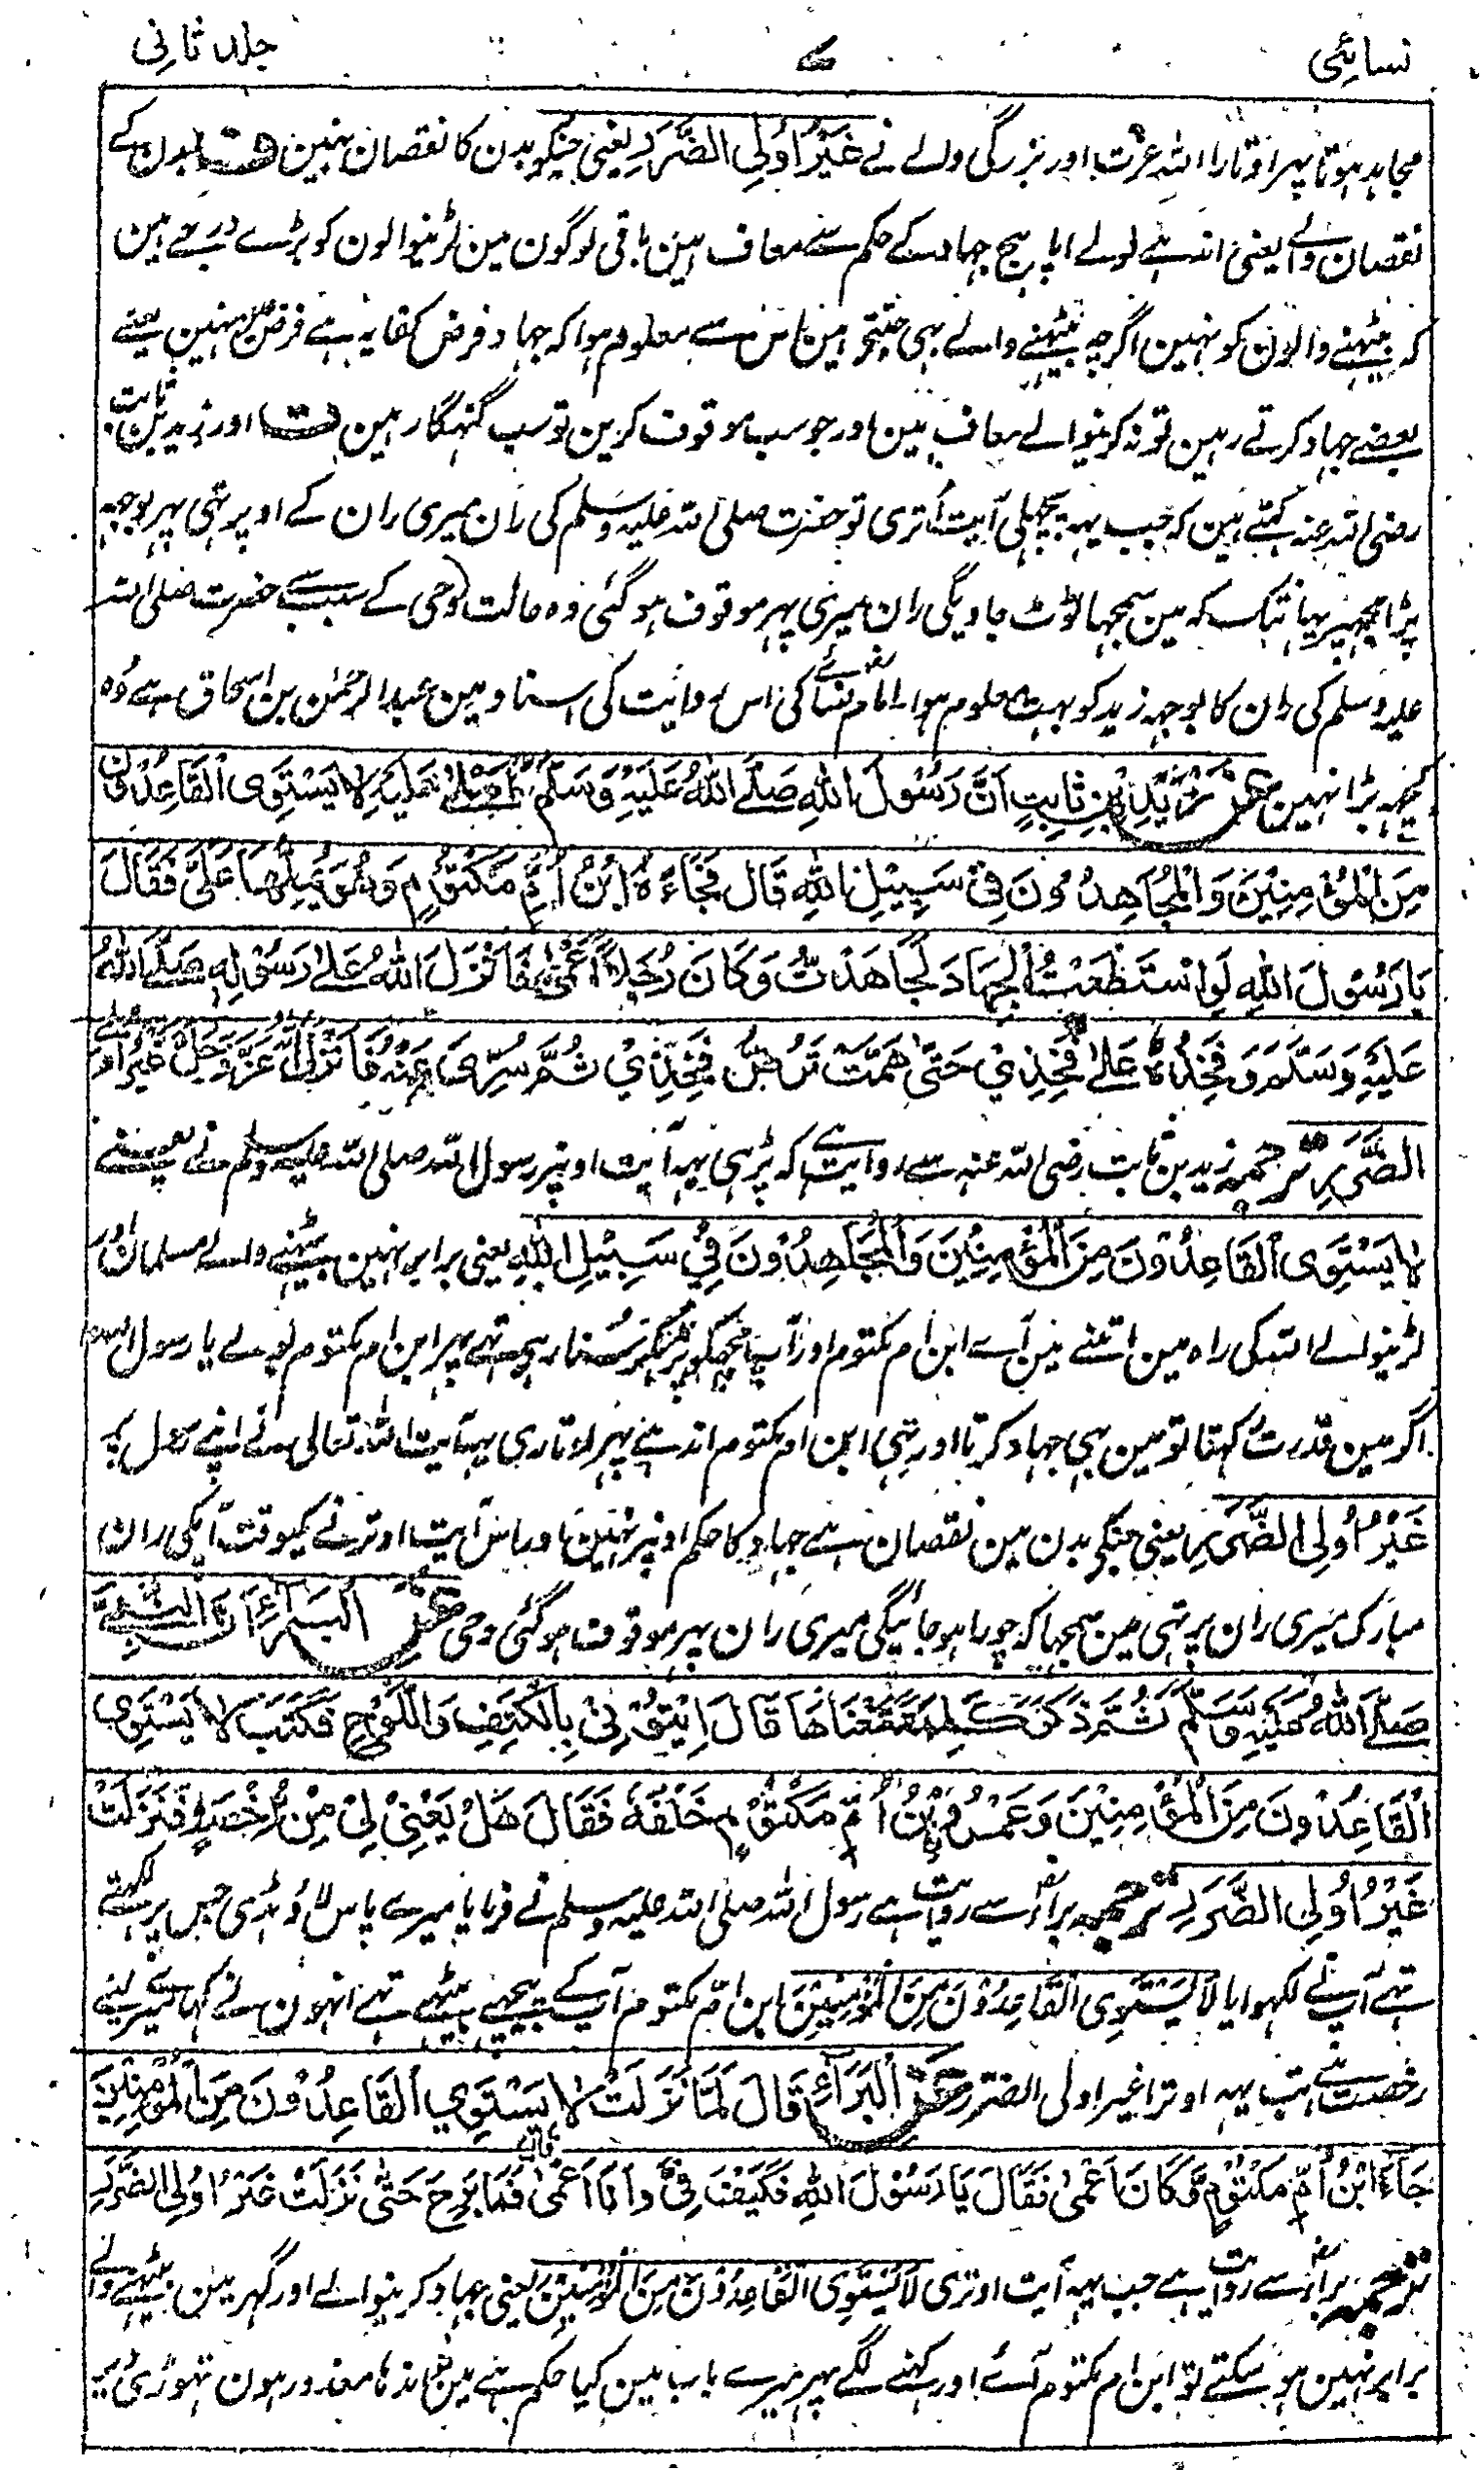 نسائی ۷ جلد ثانی
مجاہد ہوتا پہر اوتارا اللہ عزت اور بزرگی والے نے غَيْرُ اُولِي الضَّرَرِ یعنی جنکو بدن کا نقصان نہین ف بدن کے
نقصان والے یعنی اندہے لولے اپاہیج جہاد کے حکم سے معاف ہین باقی لوگون مین لڑنیوالون کو بڑے درجے ہین
کہ بیٹہنے والون کو نہین اگرچہ بیٹہنے والے بہی جنتی ہین اس سے معلوم ہوا کہ جہاد فرض کفایہ ہے فرض عین نہین یعنے
بعضے جہاد کرتے رہین تو نہ کرنیوالے معاف ہین اور جو سب موقوف کرین تو سب گنہگار ہین ف اور زید بن ثابت
رضی اللہ عنہ کہتے ہین کہ جب یہہ پچہلی آیت اُتری تو حضرت صلی اللہ علیہ وسلم کی ران میری ران کے اوپر تہی پہر بوجہہ
پڑا مجہپر یہانتک کہ مین سمجہا ٹوٹ جاویگی ران میری پہر موقوف ہو گئی وہ حالت (وحی کے سبب سے حضرت صلی اللہ
علیہ وسلم کی ران کا بوجہہ زید کو بہت معلوم ہوا۔ امام نسائی نے کہا اس روایت کی اسناد مین عبد الرحمٰن بن اسحاق ہے وُہ
کچہہ بڑا نہین عَنْ زَيْدِ بْنِ ثَابِتٍ اَنَّ رَسُوْلَ اللهِ صَلَّى اللهُ عَلَيْهِ وَسَلَّمَ اَمْلٰى عَلَيْهِ لَا يَسْتَوِى الْقَاعِدُوْنَ
مِنَ الْمُؤْمِنِيْنَ وَالْمُجَاهِدُوْنَ فِىْ سَبِيْلِ اللهِ قَالَ فَجَاءَهُ ابْنُ اُمِّ مَكْتُوْمٍ وَهُوَ يُمِلُّهَا عَلَىَّ فَقَالَ
يَا رَسُوْلَ اللهِ لَوِ اسْتَطَعْتُ الْجِهَادَ لَجَاهَدْتُّ وَكَانَ رَجُلًا اَعْمٰى فَاَنْزَلَ اللهُ عَلٰى رَسُوْلِهٖ صَلَّى اللهُ
عَلَيْهِ وَسَلَّمَ وَفَخِذُهٗ عَلٰى فَخِذِيْ حَتّٰى هَمَّتْ تَرُضُّ فَخِذِيْ ثُمَّ سُرِّىَ عَنْهُ فَاَنْزَلَ اللهُ عَزَّ وَجَلَّ غَيْرُ اُولِى
الضَّرَرِ ترجمہ زید بن ثابت رضی اللہ عنہ سے روایت ہے کہ پڑہی یہہ آیت اونپر رسول اللہ صلی اللہ علیہ وسلم نے یعنے
لَا يَسْتَوِى الْقَاعِدُوْنَ مِنَ الْمُؤْمِنِيْنَ وَالْمُجَاهِدُوْنَ فِيْ سَبِيْلِ اللهِ یعنی برابر نہین بیٹہنے والے مسلمان اور
لڑنیوالے اللہ کی راہ مین اتنے مین آے ابن ام مکتوم اور آپ مجہکو پڑہکر سنا رہے تہے پہر ابن ام مکتوم بولے یا رسول اللہ
اگر مین قدرت رکہتا تو مین بہی جہاد کرتا اور تہی ابن ام مکتوم اندہے پہر اوتاری یہہ آیت اللہ تعالی نے اپنے رسول پر
غَيْرُ اُولِى الضَّرَرِ یعنی جنکی بدن مین نقصان ہے جہاد کا حکم اونپر نہین اور اس آیت اوترنے کیوقت آپکی ران
مبارک میری ران پر تہی مین سمجہا کہ چورا ہو جائیگی میری ران پہر موقوف ہو گئی وحی عَنِ الْبَرَآءِ اَنَّ النَّبِيَّ
صَلَّى اللهُ عَلَيْهِ وَسَلَّمَ ثُمَّ ذَكَرَ كَلِمَةً مَّعْنَاهَا قَالَ ايْتُوْنِىْ بِالْكَتِفِ وَاللَّوْحِ فَكَتَبَ لَا يَسْتَوِى
الْقَاعِدُوْنَ مِنَ الْمُؤْمِنِيْنَ وَعَمْرُو بْنُ اُمِّ مَكْتُوْمٍ خَلْفَهٗ فَقَالَ هَلْ يَعْنِىْ لِىْ مِنْ رُّخْصَةٍ فَنَزَلَتْ
غَيْرُ اُولِى الضَّرَرِ ترجمہ براء سے روایت ہے رسول اللہ صلی اللہ علیہ وسلم نے فرمایا میرے پاس لاؤ ہڈی جس پر لکہتے
تہے آپ نے لکہوایا لَا يَسْتَوِى الْقَاعِدُوْنَ مِنَ الْمُؤْمِنِيْنَ ابن ام مکتوم آپ کے پیچہے بیٹہے تہے انہون نے کہا میرے لیئے
رخصت ہے تب یہہ اوترا غیر اولی الضرر عَنِ الْبَرَآءِ قَالَ لَمَّا نَزَلَتْ لَا يَسْتَوِي الْقَاعِدُوْنَ مِنَ الْمُؤْمِنِيْنَ
جَآءَ ابْنُ اُمِّ مَكْتُوْمٍ وَّكَانَ اَعْمٰى فَقَالَ يَا رَسُوْلَ اللهِ فَكَيْفَ فِىَّ وَاَنَا اَعْمٰى قَالَ فَمَا بَرِحَ حَتّٰى نَزَلَتْ غَيْرُ اُولِى الضَّرَرِ
ترجمہ براء سے روایت ہے جب یہہ آیت اوتری لَا يَسْتَوِى الْقَاعِدُوْنَ مِنَ الْمُؤْمِنِيْنَ یعنی جہاد کرنیوالے اور گہر مین بیٹہنے والے
برابر نہین ہو سکتے تو ابن ام مکتوم آئے اور کہنے لگے پہر میرے باب مین کیا حکم ہے مین اندہا معذور ہون تہوڑی دیر